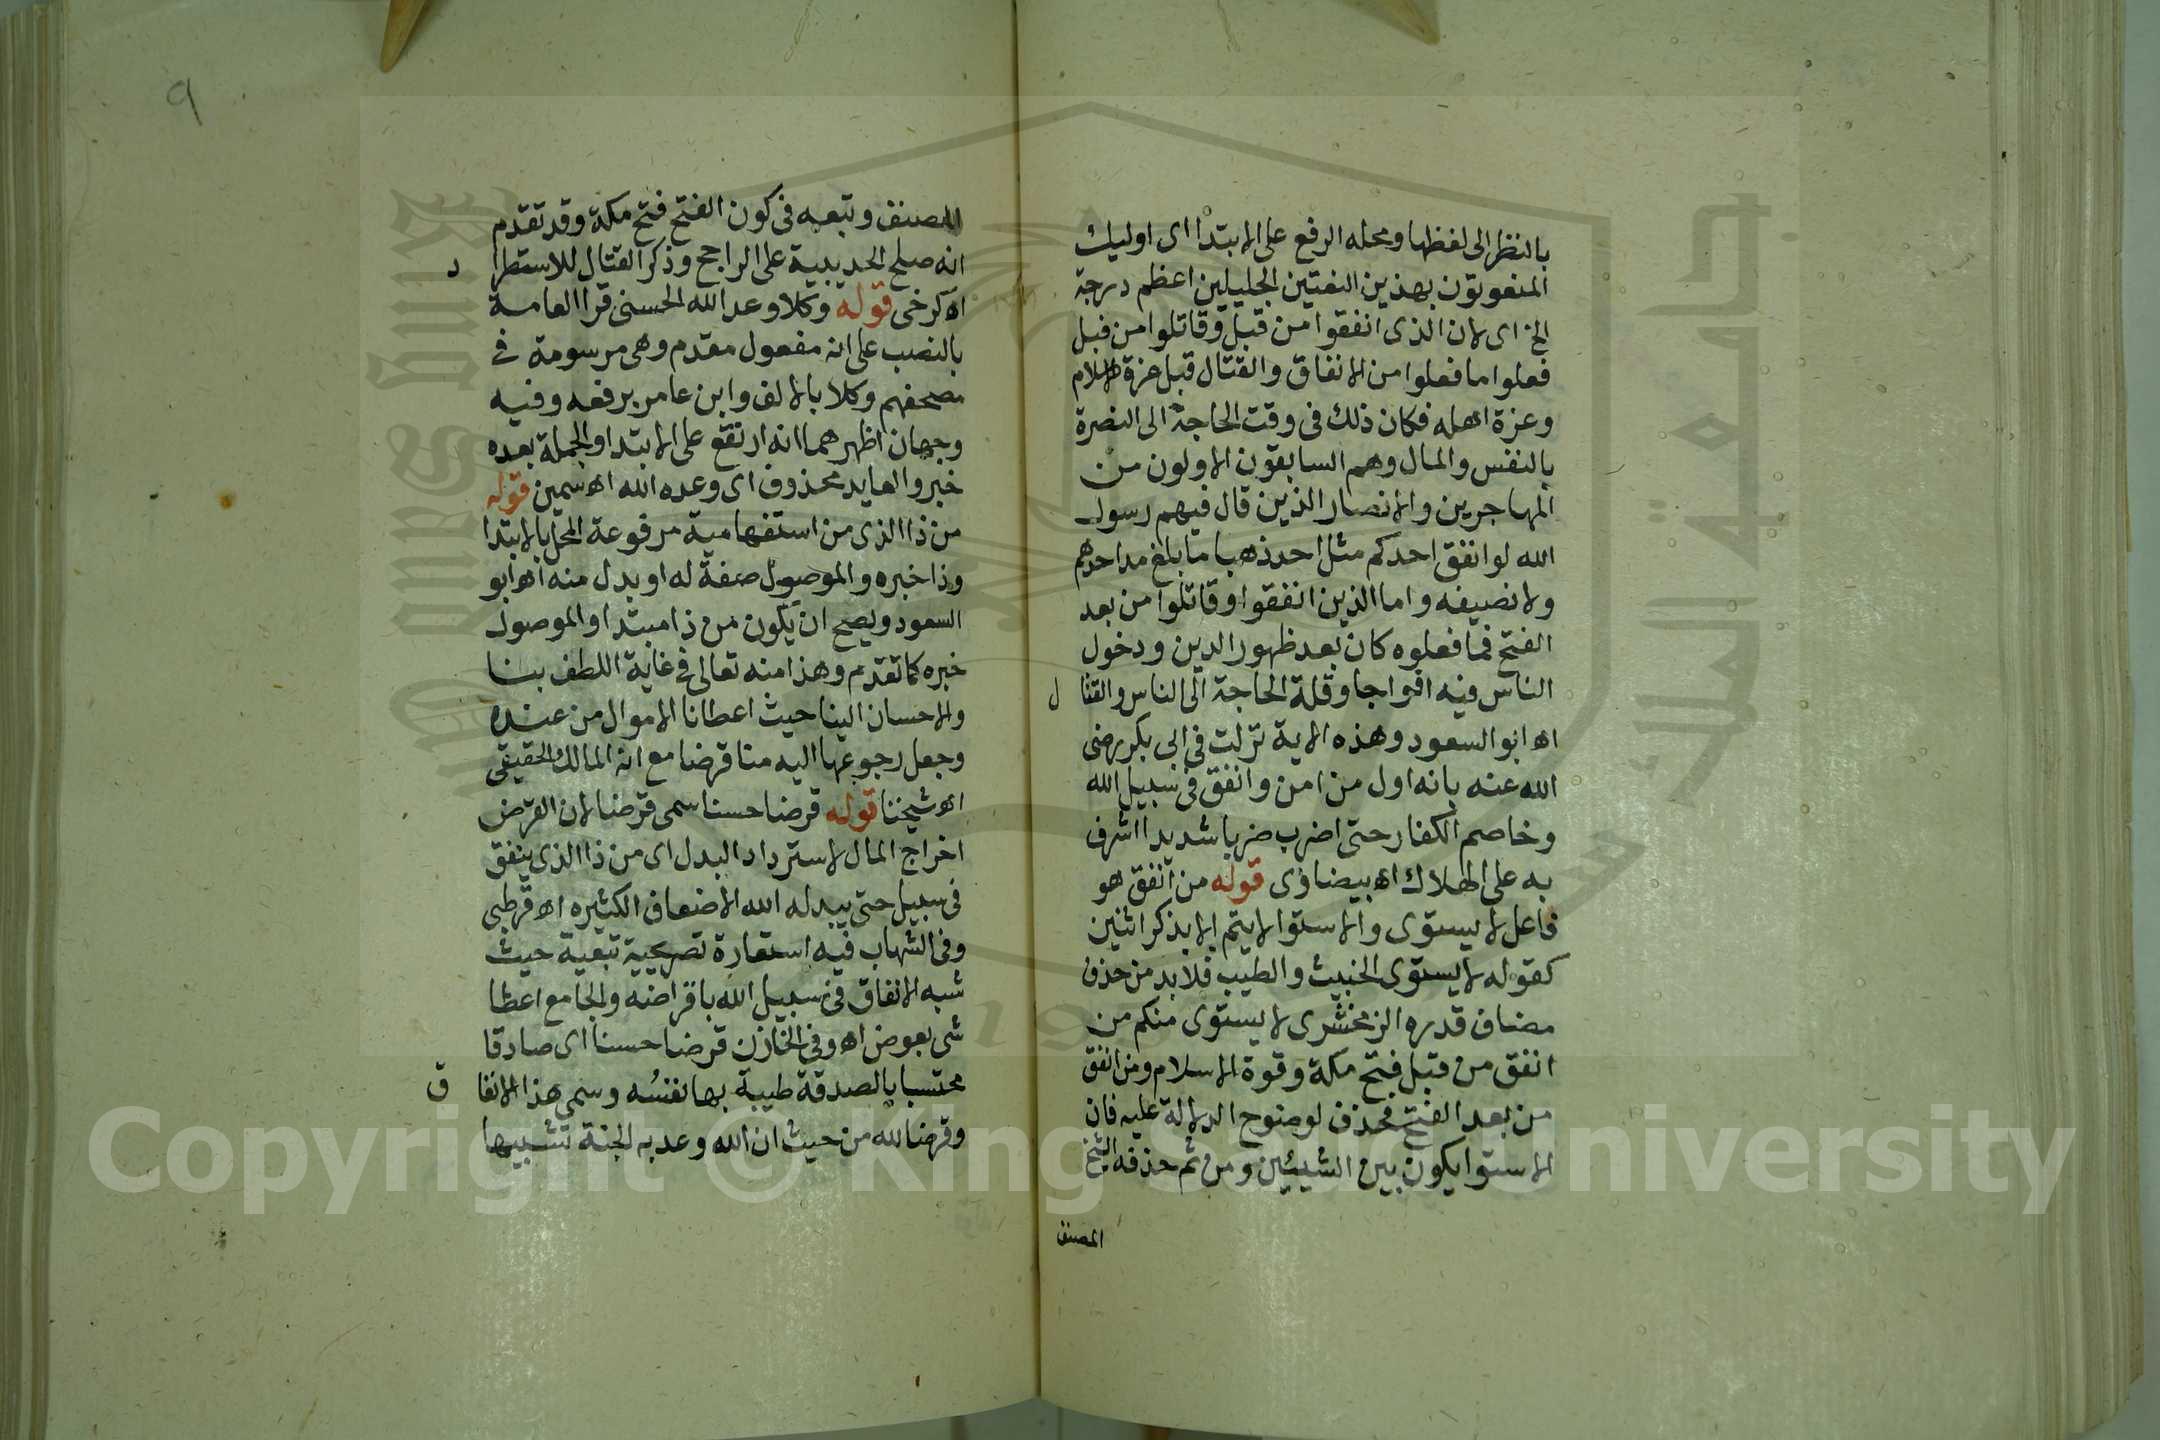 بالنظر الى لفظها ومحله الرفع على الابتدا اى اوليك
المنعوتون بهذين النعتين الجليلين اعظم درجة
الخ اى لان الذى انفقوا من قبل وقاتلوا من قبل
فعلوا ما فعلوا من الانفاق والقتال قبل عزة الاسلام
وعزة اهله فكان ذلك فى وقت الحاجة الى النصرة
بالنفس والمال وهم السابقون الاولون من
المهاجرين والانصار الذين قال فيهم رسول
الله لو انفق احدكم مثل احد ذهبا ما بلغ مد احدهم
ولا نصيفه واما الذين انفقوا وقاتلوا من بعد
الفتح فما فعلوه كان بعد ظهور الدين ودخول
الناس فيه افواجا وقلة الحاجة الى الناس والقتا ل
اه ابو السعود وهذه الاية نزلت فى ابى بكر رضى
الله عنه بانه اول من امن وانفق فى سبيل الله
وخاصم الكفار حتى اضرب ضربا شديدا اشرف
به على الهلاك اه بيضاوى قوله من انفق هو
فاعل لا يستوى والاستوا لا يتم الا بذكر اثنين
كقوله لا يستوى الخبيث والطيب فلا بد من حذف
مضاف قدره الزمخشرى لا يستوى منكم من
انفق من قبل فتح مكة وقوة الاسلام ومن انفق
من بعد الفتح فحذف لوضوح الدلالة عليه فان
الاستوا يكون بين الشيئين ومن ثم حذفه الشيخ
المصنف
٩
المصنف وتبعه فى كون الفتح فتح مكة وقد تقدم
انه صلح الحديبية على الراجح وذكر القتال للاستطرا د
اه كرخى قوله وكلا وعد الله الحسنى قرا العامة
بالنصب على انه مفعول مقدم وهى مرسومة فى
مصحفهم وكلا بالالف وابن عامر برفعه وفيه
وجهان اظهرهما انه ارتفع على الابتدا والجملة بعده
خبر والعايد محذوف اى وعده الله اه سمين قوله
من ذا الذى من استفهامية مرفوعة المحل بالابتدا
وذا خبره والموصول صفة له او بدل منه اه ابو
السعود ويصح ان يكون من ذا مبتدا والموصول
خبره كما تقدم وهذا منه تعالى فى غاية اللطف بنا
والاحسان الينا حيث اعطانا الاموال من عنده
وجعل رجوعها اليه منا قرضا مع انه المالك الحقيقى
اه شيخنا قوله قرضا حسنا سمى قرضا لان القرض
اخراج المال لاسترداد البدل اى من ذا الذى ينفق
فى سبيل حتى يبدله الله الاضعاف الكثيره اه قرطبى
وفى الشهاب فيه استعارة تصريحية تبعية حيث
شبه الانفاق فى سبيل الله باقراضه والجامع اعطا
شى بعوض اه وفى الخازن قرضا حسنا اى صادقا
محتسبا بالصدقة طيبة بها نفسُه وسمى هذا الانفا ق
وقرضا لله من حيث ان الله وعد به الجنة تشبيها
Copyright © King Saud University